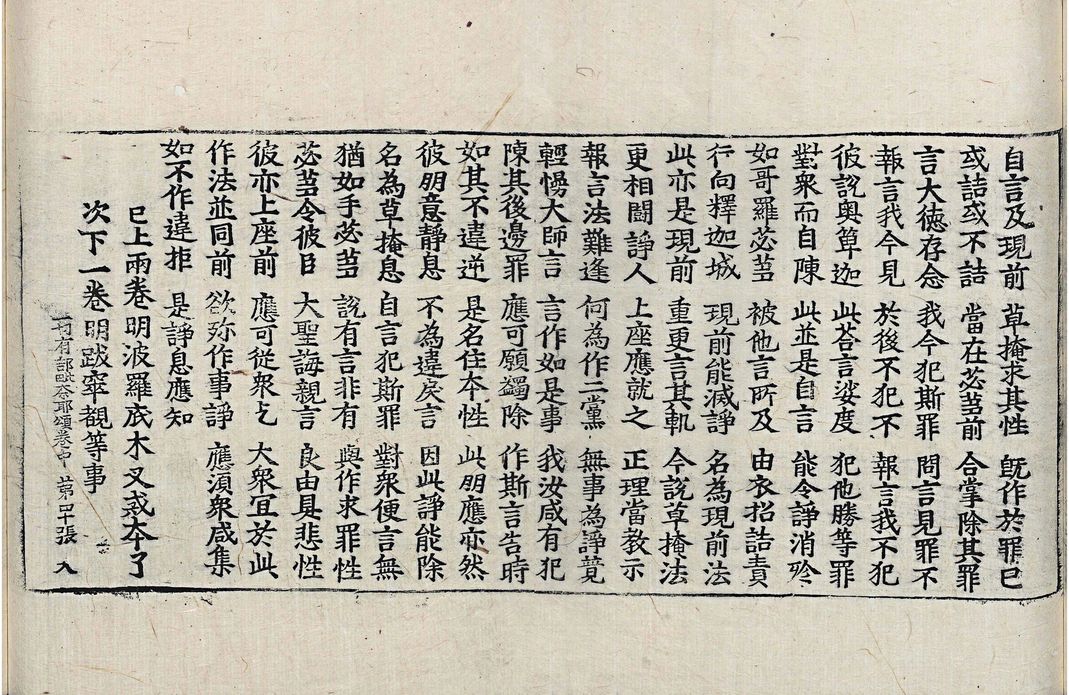 自言及現前 草掩求其性 旣作於罪已
或詰或不詰 當在苾蒭前 合掌除其罪
言大德存念 我今犯斯罪 問言見罪不
報言我今見 於後不犯不 報言我不犯
彼說奧箄迦 此荅言娑度 犯他勝等罪
對衆而自陳 此並是自言 能令諍消殄
如哥羅苾蒭 被他言所及 由衣招詰責
行向釋迦城 現前能滅諍 名為現前法
此亦是現前 重更言其軌 今說草掩法
更相鬪諍人 上座應就之 正理當教示
報言法難逢 何為作二黨 無事為諍競
輕慢大師言 言作如是事 我汝咸有犯
陳其後邊罪 應可願蠲除 作斯言告時
如其不違逆 是名住本性 此朋應亦然
彼朋意靜息 不為違戾言 因此諍能除
名為草掩息 自言犯斯罪 對衆便言無
猶如手苾蒭 說有言非有 與作求罪性
苾蒭令彼目 大聖誨親言 良由具悲性
彼亦上座前 應可從衆乞 大衆宜於此
作法並同前 欲弥作事諍 應湏衆咸集
如不作違拒 是諍息應知
已上兩卷明波羅底木叉戒本了
次下一卷明跋窣覩等事
根有部毗奈耶頌卷中 第四十張 九